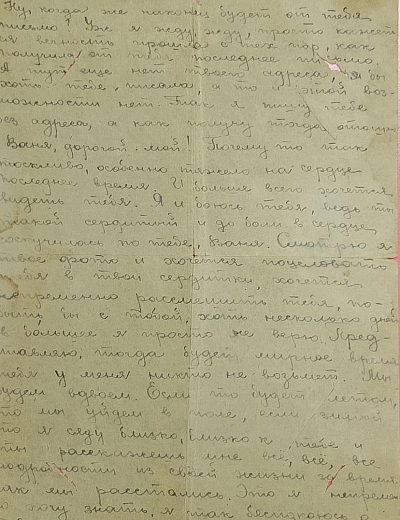 Ну, когда же наконец будет от тебя
письмо? Уж я жду, жду, просто кажет
ся вечность прошла с тех пор, как
получила от тебя последнее письмо.
А тут еще нет твоего адреса, я бы
хоть тебе писала, а то и этой воз-
можности нет. Так я пишу тебе
без адреса, а как получу тогда отошлю
Ваня, дорогой мой! Почему то так
тоскливо, особенно тяжело на сердце
последнее время. И больше всего хочется
видеть тебя. Я и боюсь тебя, ведь ты
такой сердитый и до боли в сердце
соскучилась по тебе, Ваня. Смотрю я
твое фото и хочется поцеловать
тебя в твои сердитки, хочется
непременно рассмешить тебя, по-
быть бы с тобой хоть несколько дней
в большее я просто не верю. Пред-
ставляю, тогда будет мирное время
тебя у меня никто не возьмет. Мы
будем вдвоем. Если это будет летом,
то мы уйдем в поле, если зимой
то я сяду близко, близко к тебе и
ты расскажешь мне все, все, все
подробности из своей жизни за время
как мы расстались. Это я непремен
но хочу знать, я так беспокоюсь о